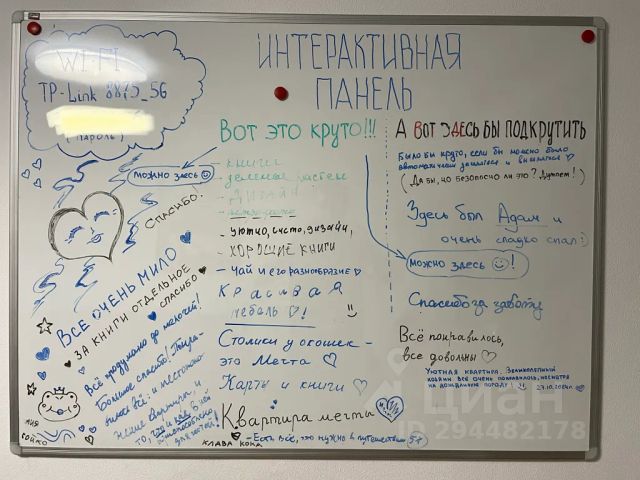 WI-FI
TP-Link 8875_5G
(ПАРОЛЬ)
ИНТЕРАКТИВНАЯ
ПАНЕЛЬ
МОЖНО ЗДЕСЬ
СПАСИБО!
ВСЕ ОЧЕНЬ МИЛО
ЗА КНИГИ ОТДЕЛЬНОЕ
СПАСИБО
Всё продумано до мелочей!
Большое спасибо!
КЛАВА КОКА
Вот это круто!!!
- книги
- ДИЗАЙН
- уютно, чисто, дизайн,
- ХОРОШИЕ КНИГИ
- Чай и его разнообразие
Красивая
мебель!
Столики у окошек -
это Мечта
Карты и книги
Квартира мечты
- Есть всё, что нужно в путешествии 5+
А Вот ЗДЕСЬ БЫ ПОДКРУТИТЬ
Было бы круто, если бы можно было
(Да бы, но безопасно ли это? Думаем!)
Здесь был Адам и
очень сладко спал:)
можно здесь !
Спасибо за заботу
Всё понравилось,
все довольны
УЮТНАЯ КВАРТИРА. ВЕЛИКОЛЕПНЫЙ
ХОЗЯИН ВСЕ ОЧЕНЬ ПОНРАВИЛОСЬ, НЕСМОТРЯ
НА ДОЖДЛИВУЮ ПОГОДУ
27.10.2024г
ЦИАН
ID 294482178